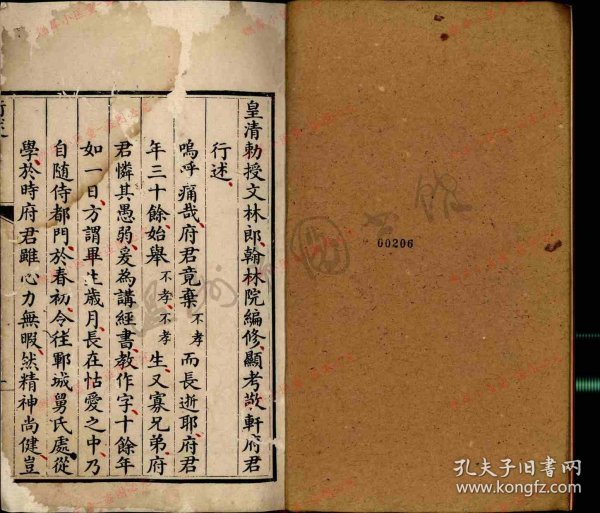 皇清勅授文林郎翰林院編修顯考敬軒府君
行述
嗚呼痛哉府君竟棄不孝而長逝耶府君
年三十餘始舉不孝不孝生又寡兄弟府
君憐其愚弱爰為講經書教作字十餘年
如一日方謂畢生歲月長在怙愛之中乃
自随侍都門於春初令往鄆城舅氏處從
學於時府君雖心力無暇然精神尚健豈
行述
00206
孔夫子旧书网
www.kongfz.com